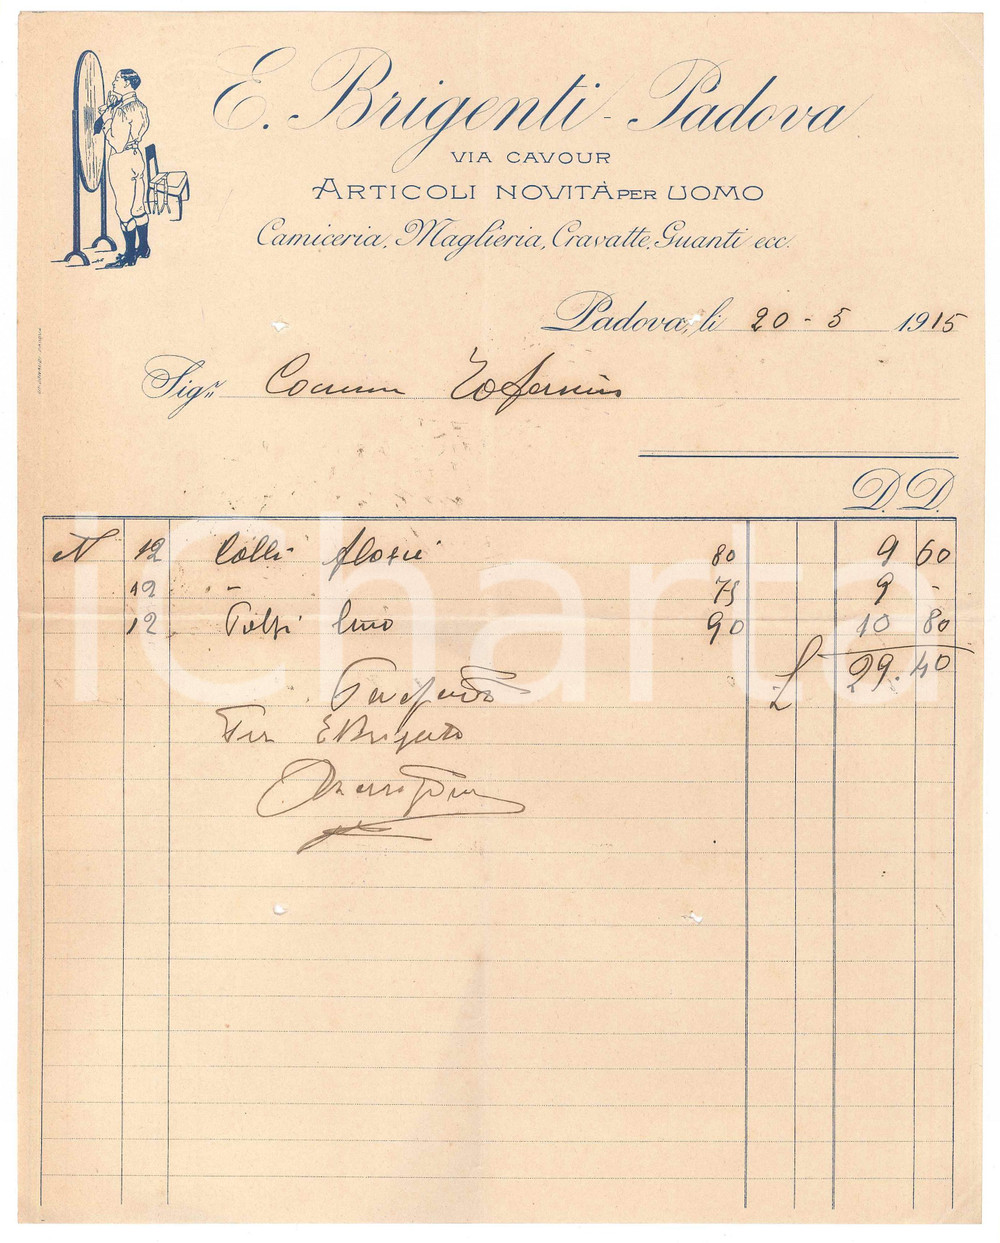 E. Brigenti - Padova
VIA CAVOUR
ARTICOLI NOVITÀ PER UOMO
Camiceria, Maglieria, Cravatte, Guanti ecc.
Padova, li 20 - 5 1915
Sigr.
D. D.
N 12 Colli 80 9 60
12 " 75 9 -
12 Polsi lino 90 10 80
£ 29.40
Per E Brigenti
iCharta